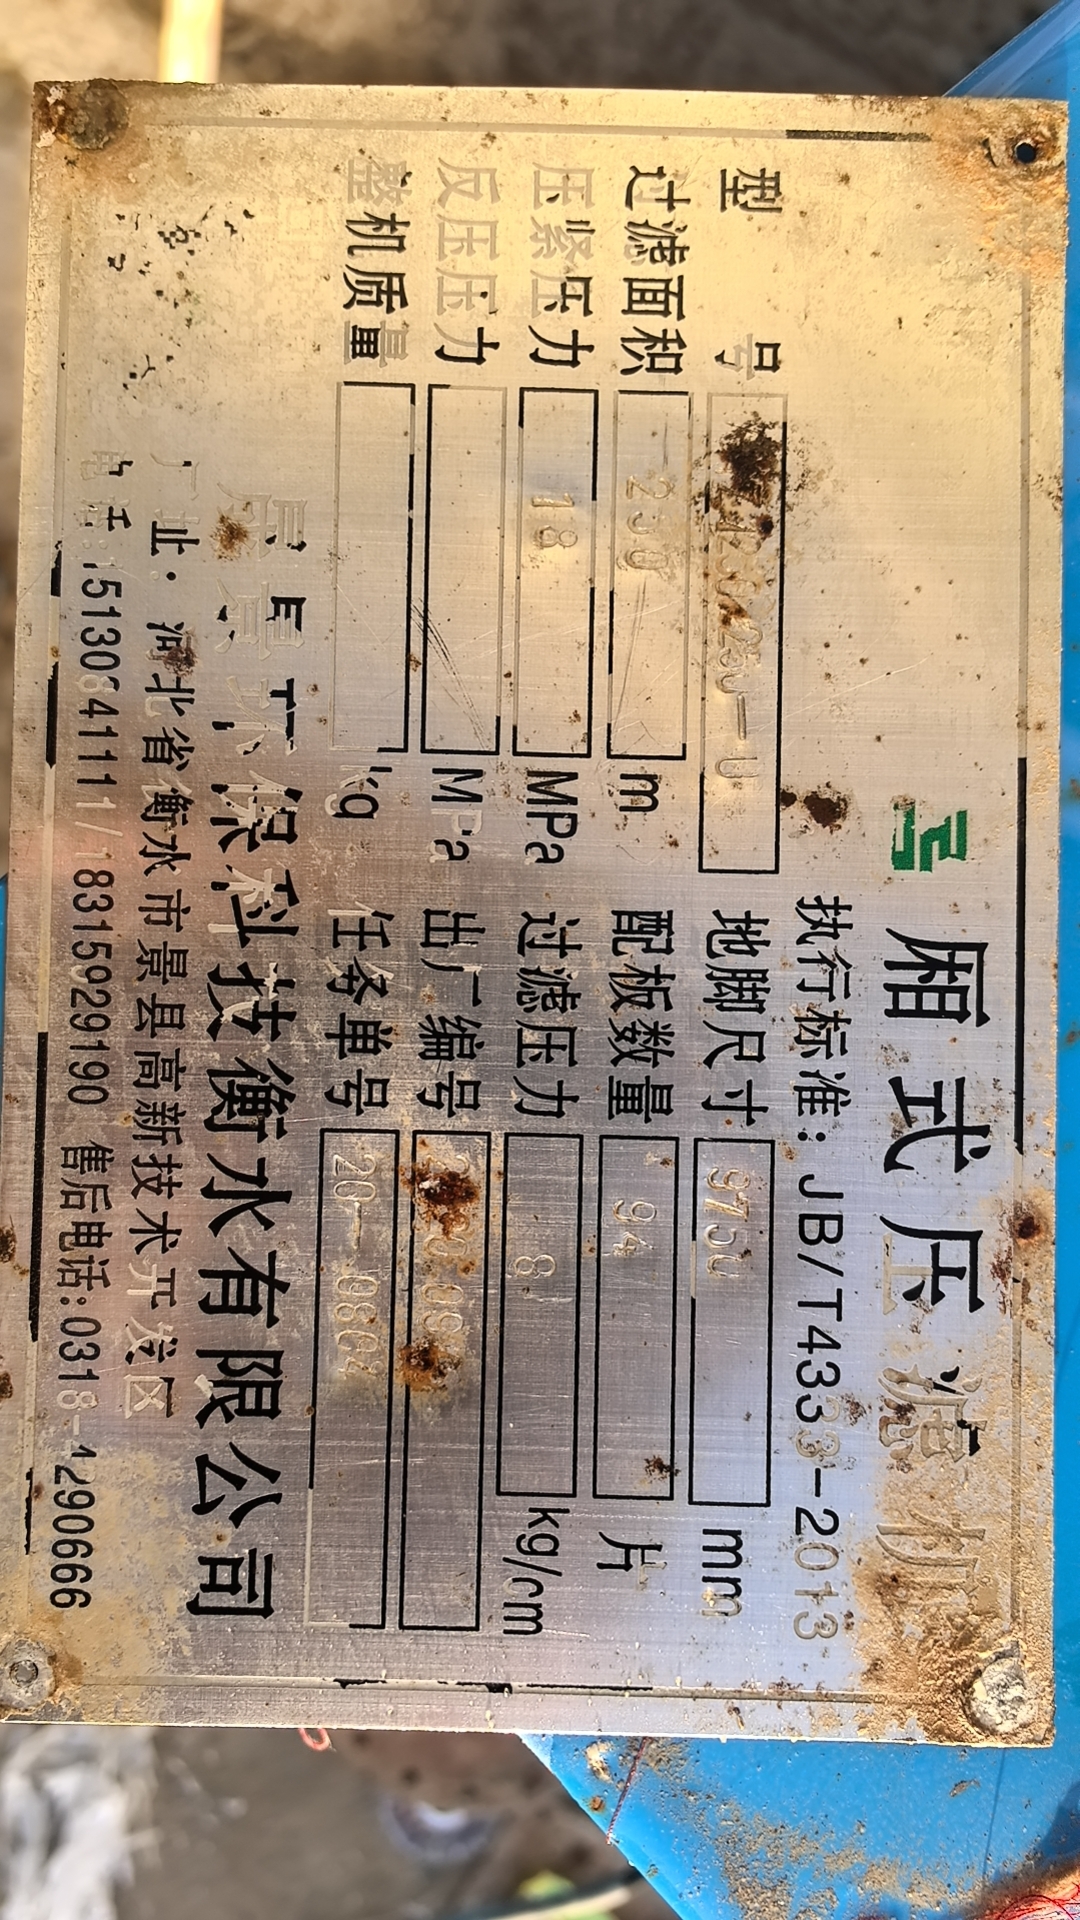 厢式压滤机
执行标准：JB/T4333-2013
型号
地脚尺寸 9750 mm
过滤面积 250 m
配板数量 94 片
压紧压力 18 MPa
过滤压力 8 kg/cm
反压压力 MPa
出厂编号
整机质量 kg
任务单号 20-0804
景县环保科技衡水有限公司
厂址：河北省衡水市景县高新技术开发区
电话:15130841111/18315929190 售后电话:0318-4290666